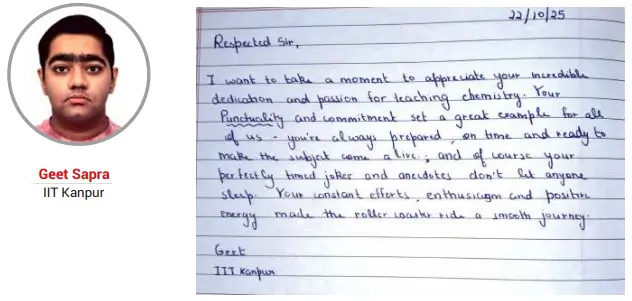 Geet Sapra
IIT Kanpur
22/10/25
Respected Sir,
I want to take a moment to appreciate your incredible
dedication and passion for teaching chemistry. Your
Punctuality and commitment set a great example for all
of us - you're always prepared, on time and ready to
make the subject come alive; and of course your
perfectly timed jokes and anecdotes don't let anyone
sleep. Your constant efforts, enthusiasm and positive
energy made the roller coaster ride a smooth journey.
Geet
IIT Kanpur